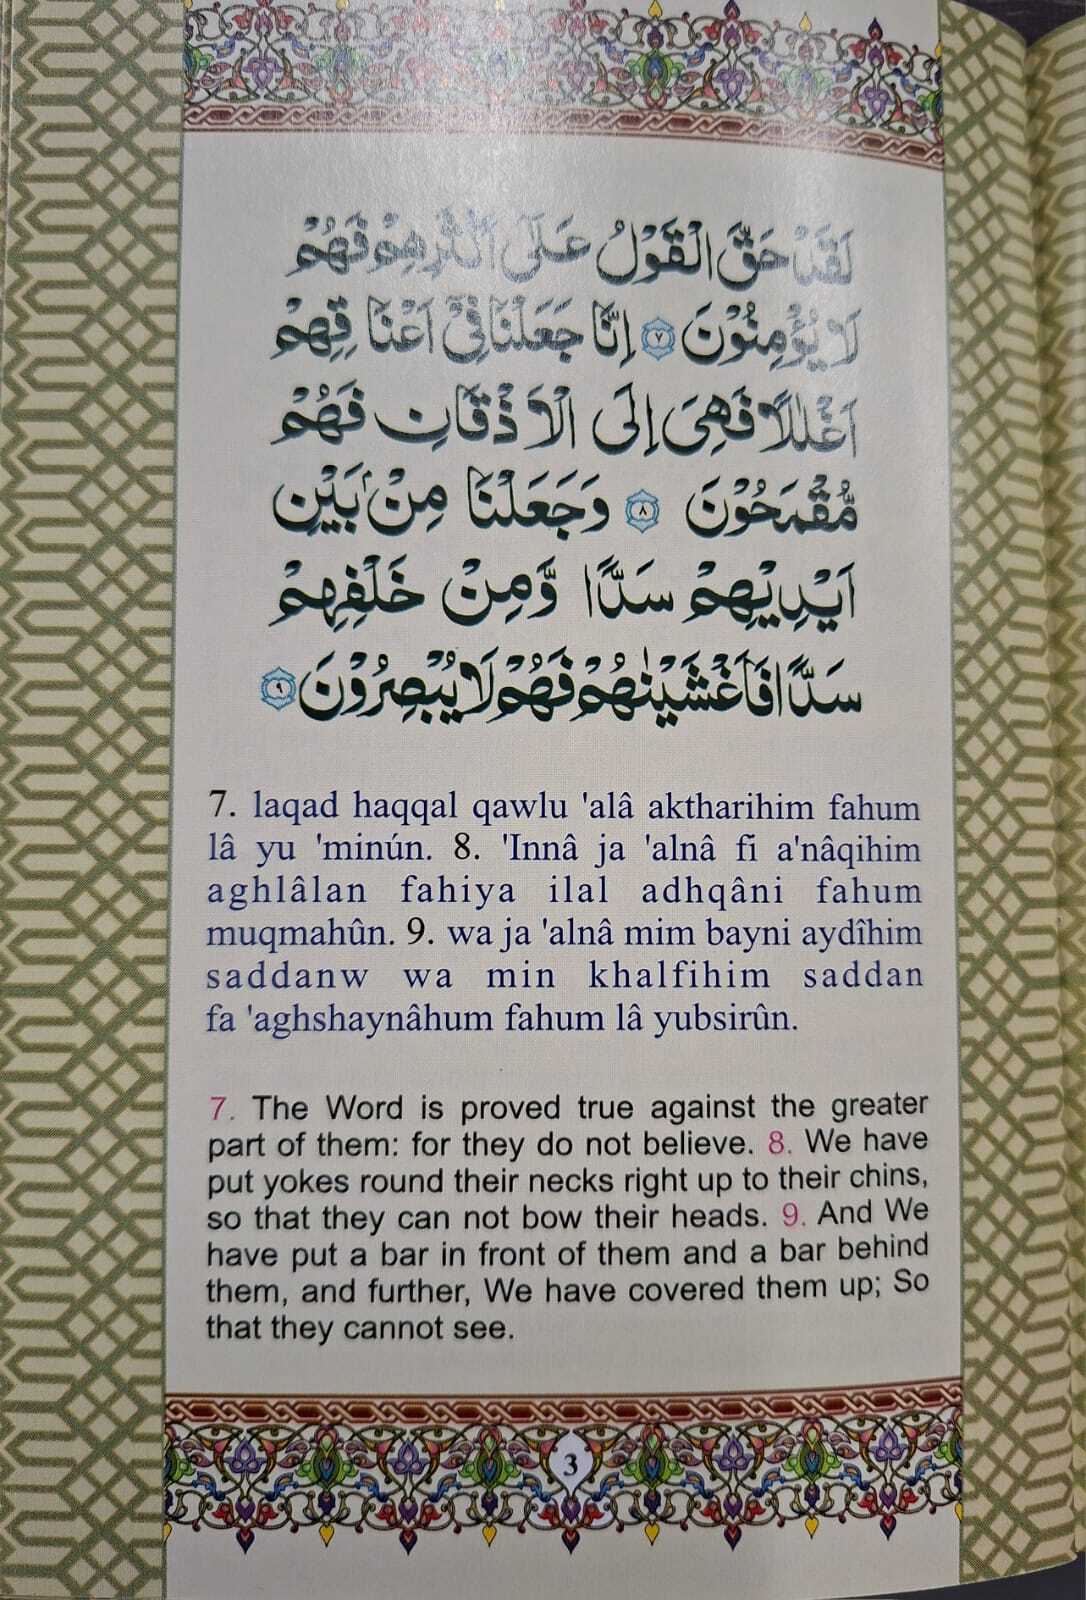 لَقَدْ حَقَّ الْقَوْلُ عَلٰٓى اَكْثَرِهِمْ فَهُمْ
لَا يُؤْمِنُوْنَ ۷ اِنَّا جَعَلْنَا فِيْٓ اَعْنَا قِهِمْ
اَغْلٰلًا فَهِيَ اِلَى الْاَ ذْقَانِ فَهُمْ
مُّقْمَحُوْنَ ۸ وَجَعَلْنَا مِنْۢ بَيْنِ
اَيْدِيْهِمْ سَدًّا وَّمِنْ خَلْفِهِمْ
سَدًّا فَاَغْشَيْنٰهُمْ فَهُمْ لَا يُبْصِرُوْنَ ۹
7. laqad haqqal qawlu 'alâ aktharihim fahum
lâ yu 'minún. 8. 'Innâ ja 'alnâ fi a'nâqihim
aghlâlan fahiya ilal adhqâni fahum
muqmahûn. 9. wa ja 'alnâ mim bayni aydîhim
saddanw wa min khalfihim saddan
fa 'aghshaynâhum fahum lâ yubsirûn.
7. The Word is proved true against the greater
part of them: for they do not believe. 8. We have
put yokes round their necks right up to their chins,
so that they can not bow their heads. 9. And We
have put a bar in front of them and a bar behind
them, and further, We have covered them up; So
that they cannot see.
3